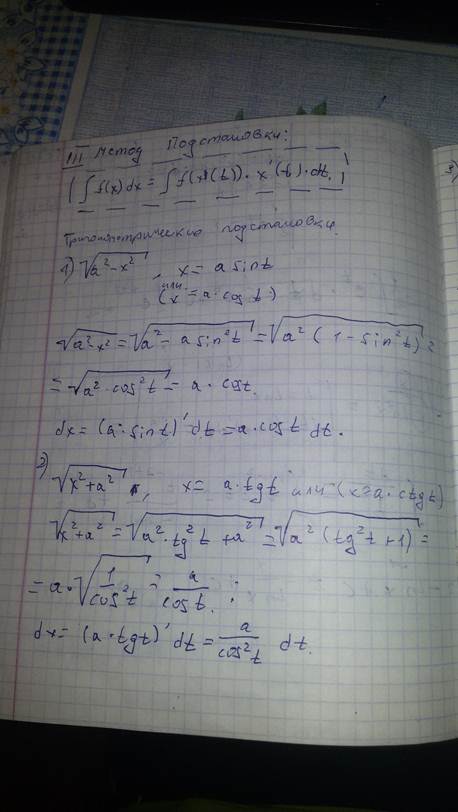 III Метод Подстановки:
∫ f(x) dx = ∫ f(x(t)) · x'(t) · dt.
Тригонометрические подстановки.
1) √(a² - x²), x = a sin t
или
(x = a · cos t)
√(a² - x²) = √(a² - a sin² t) = √(a² (1 - sin² t)) =
= √(a² · cos² t) = a · cos t.
dx = (a · sin t)' dt = a · cos t dt.
2) √(x² + a²), x = a · tg t или (x = a · ctg t)
√(x² + a²) = √(a² · tg² t + a²) = √(a² (tg² t + 1)) =
= a · √(1/cos² t) = a/cos t.;
dx = (a · tg t)' dt = a/cos² t dt.
3)